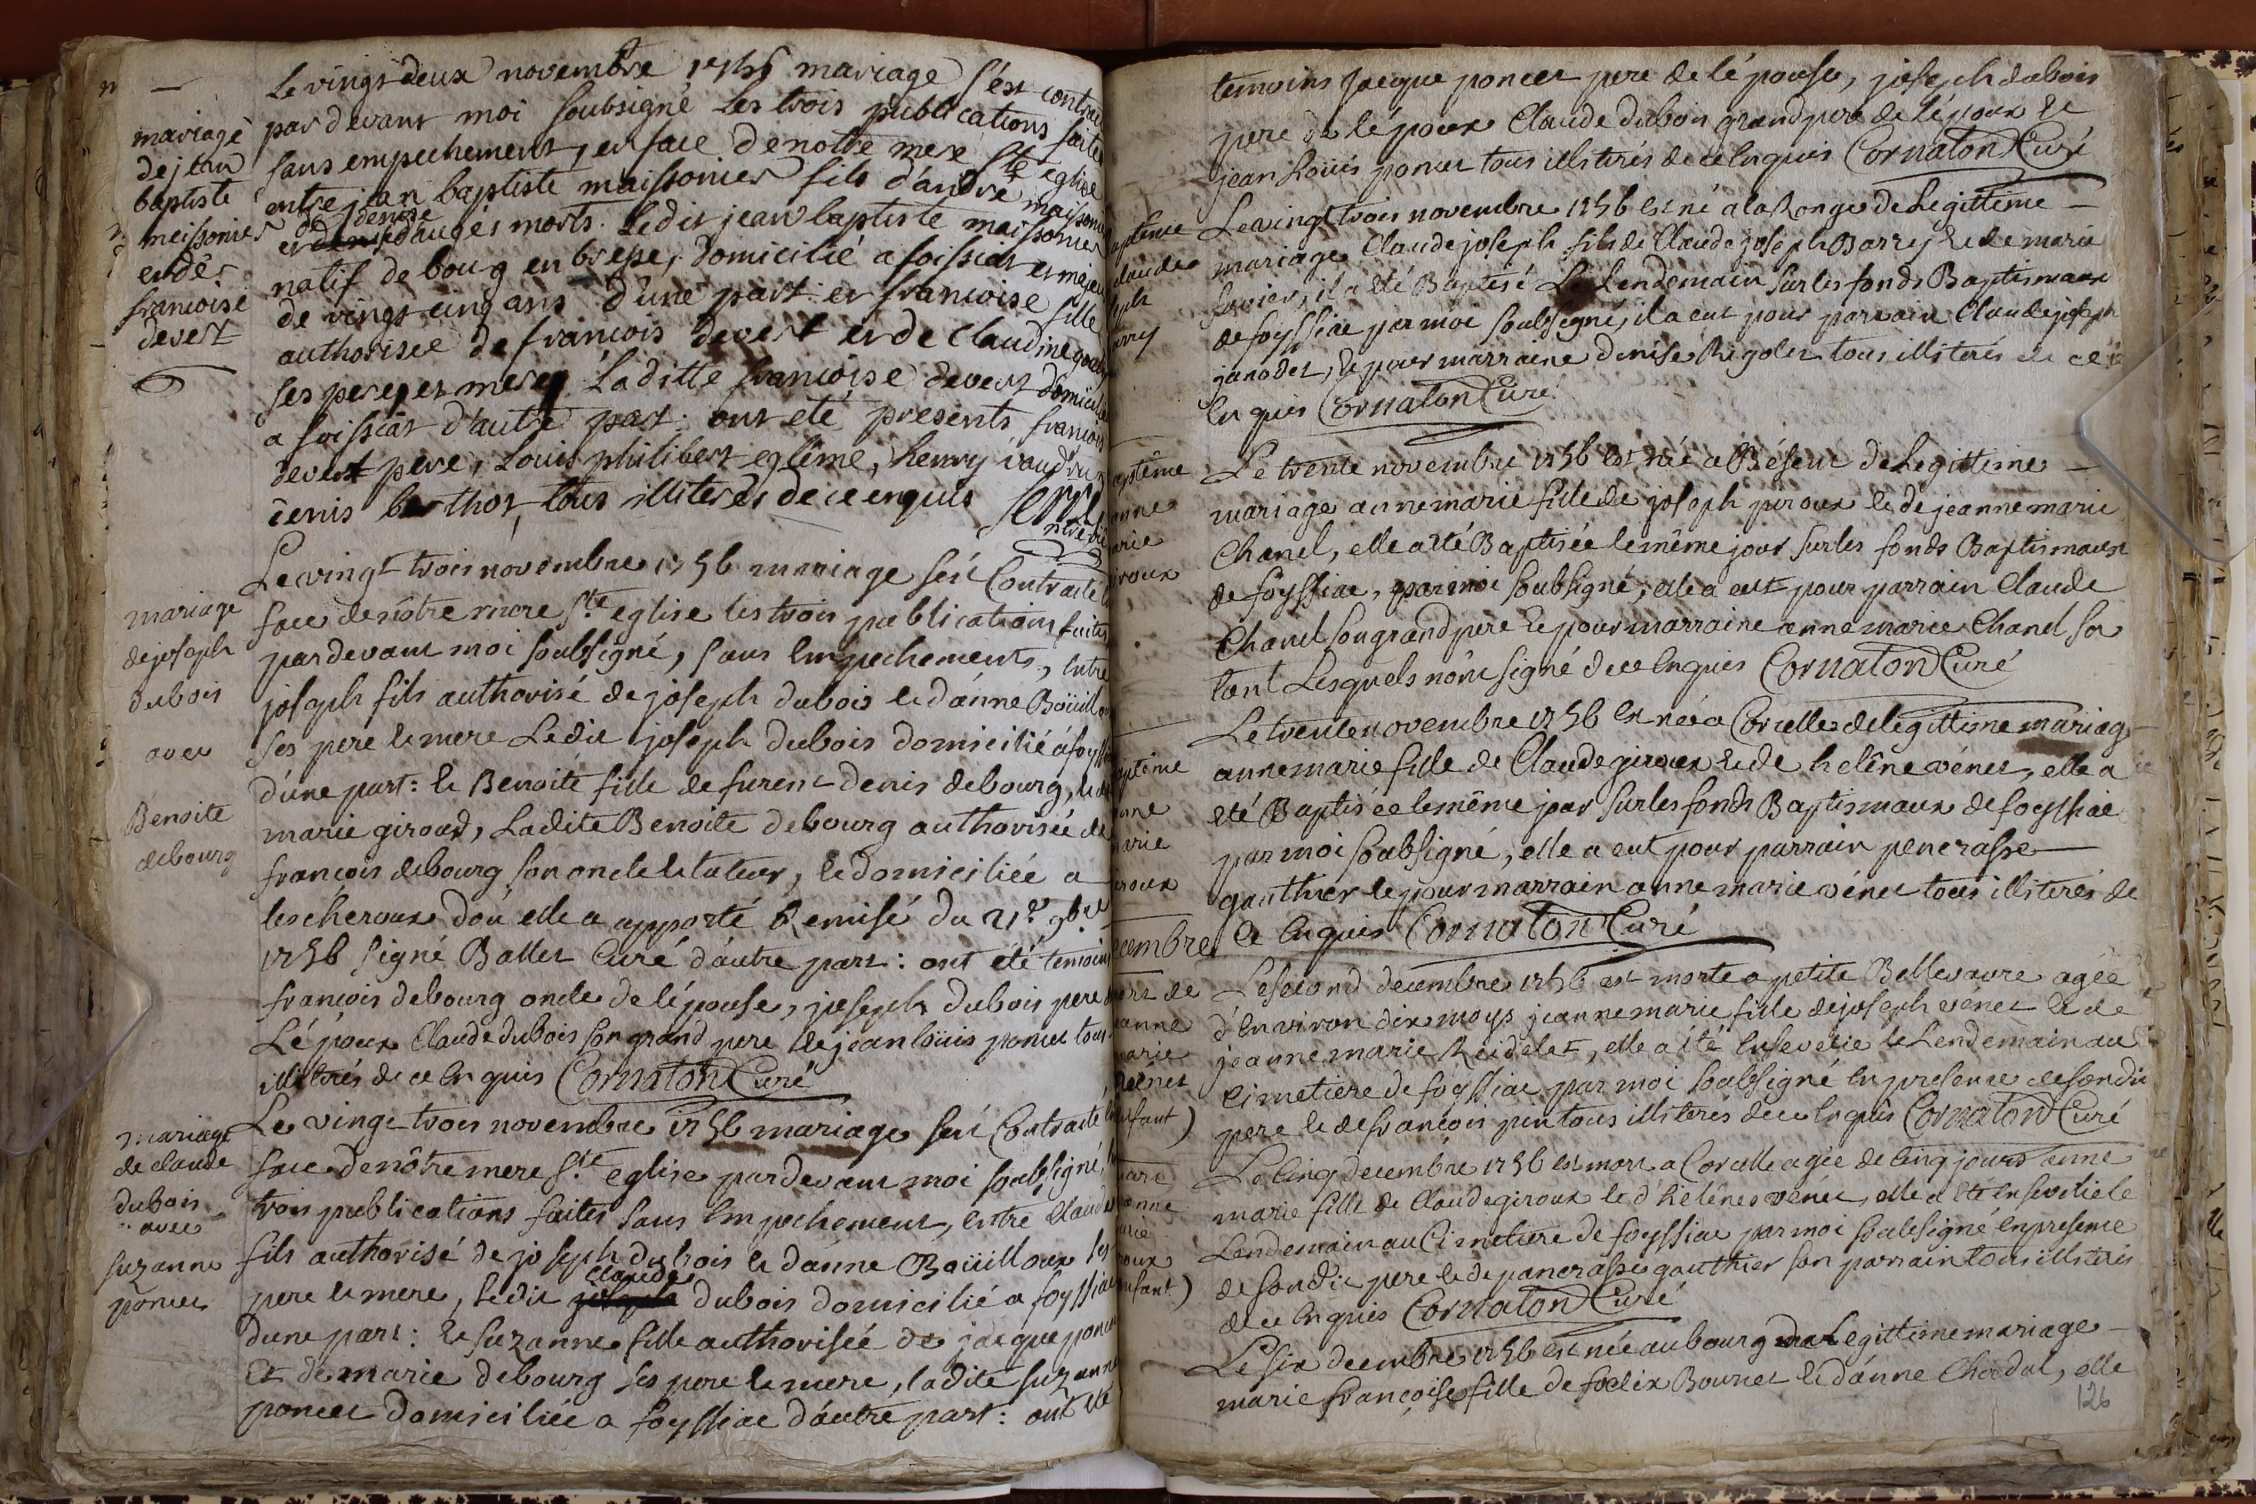 Le vingt deux novembre 1756 mariage s'est contracté
par devant moi soubsigné les trois publications faites
sans empechement, en face denotre mere Ste eglise
entre jean baptiste maissonier fils d'andré maissonier
denise
et d'augés morts. Ledit jean baptiste maissonier
natif de bourg en bresse, domicilié a foissiat et majeur
de vingt cinq ans d'une part: et francoise fille
authorisee de francois devert et de Claudine
ses pere et mere, Laditte francoise devert domiciliée
a foissiat d'autre part: ont eté presents francois
devert pere, Louis philibert egléme, henry
denis berthot, tous illiterés de ce enquis
mariage
dejean
baptiste
meissonier
et de
francoise
devert
Le vingt trois novembre 1756 mariage s'est Contracté en
face de nôtre mere Ste eglise les trois publications faites
pardevant moi soubsigné, sans Empechements, Entre
joseph fils authorisé de joseph dubois et d'anne Boüilloux
ses pere et mere Ledit joseph dubois domicilié à foyssiat
d'une part: et Benoite fille de furent denis debourg, et de
marie giroud, Ladite Benoite debourg authorisée de
françois debourg son oncle et tuteur, et domiciliée a
lescheroux d'où elle a apporté Remise du 21e 9bre
1756 signé Ballet Curé d'autre part: ont été temoins
francois debourg oncle de lépouse, joseph dubois pere de
L'époux Claude dubois son grand pere et jean loüis poncet tous
illiterés de ce Enquis Cornaton Curé
mariage
dejoseph
dubois
avec
Benoite
debourg
Le vingt trois novembre 1756 mariage s'est Contracté en
face de nôtre mere Ste eglise pardevant moi soubsigné, les
trois publications faites sans Empechement, Entre Claude
fils authorisé de joseph dubois et d'anne Boüilloux ses
claude
pere et mere, Ledit joseph dubois domicilié a foyssiat
d'une part: et suzanne fille authorisée de jacque poncet
Et de marie debourg ses pere et mere, ladite suzanne
poncet domiciliée a foyssiat d'autre part: ont été
mariage
de claude
dubois
avec
suzanne
poncet
temoins jacque poncet pere de lé pouse, joseph dubois
pere de lépoux Claude dubois grand pere de lépoux et
jean Loüis poncet tous illiterés de ce Enquis Cornaton Curé
Le vingt trois novembre 1756 est né a la Ronge de Legittime
mariage Claude joseph fils de Claude joseph Barrey et de marie
fevrier, il a été Baptisé Le Lendemain sur les fonds Baptismaux
de foyssiat par moi soubsigné, il a eut pour parrain Claude joseph
janodet, et pour marraine denise Rigolet tous illiterés de ce
Enquis Cornaton Curé
aptême
claude
seph
arrey
Le trente novembre 1756 est née a Béseut de Legittime
mariage anne marie fille de joseph piroux et de jeanne marie
Chanel, elle a été Baptisée le même jour sur les fonds Baptismaux
de foyssiat, par moi soubsigné, elle a eut pour parrain Claude
Chanel son grand pere et pour marraine anne marie Chanel sa
tant Lesquels n'ont signé de ce Enquis Cornaton Curé
aptême
anne
arie
iroux
Le trente novembre 1756 est née a Corcelle de legittime mariag
anne marie fille de Claude giroux et de helêne vénet, elle a
eté Baptisée le même jour sur les fonds Baptismaux de foyssiat
par moi soubsigné, elle a eut pour parrain pencrasse
gauthier et pour marrain anne marie vénet tous illiterés de
ce Enquis Cornaton Curé
aptême
anne
arie
iroux
ecembre
Le second decembre 1756 est morte a petite Bellevavre agée
d'Environ dix moys jeanne marie fille de joseph vénet et de
jeanne marie Reidelet, elle a été Ensevelie le Lendemain au
Cimetiere de foyssiat par moi soubsigné En presence de sondit
pere et de françois pin tous illiterés de ce Enquis Cornaton Curé
ort de
eanne
arie
vénet
enfant)
Le Cinq decembre 1756 est mort a Corcelle agée de Cinq jours anne
marie fille de Claude giroux et d'helênes vénet, elle a été Ensevelie le
Lendemain au Cimetiere de foyssiat par moi soubsigné En presence
de sondit pere et de pancrasse gauthier son parrain tous illiterés
de ce Enquis Cornaton Curé
anne
arie
roux
enfant)
Le six decembre 1756 est née au bourg de Legittime mariage
marie françoise fille de foelix Bournet et d'anne Chodat, elle
126